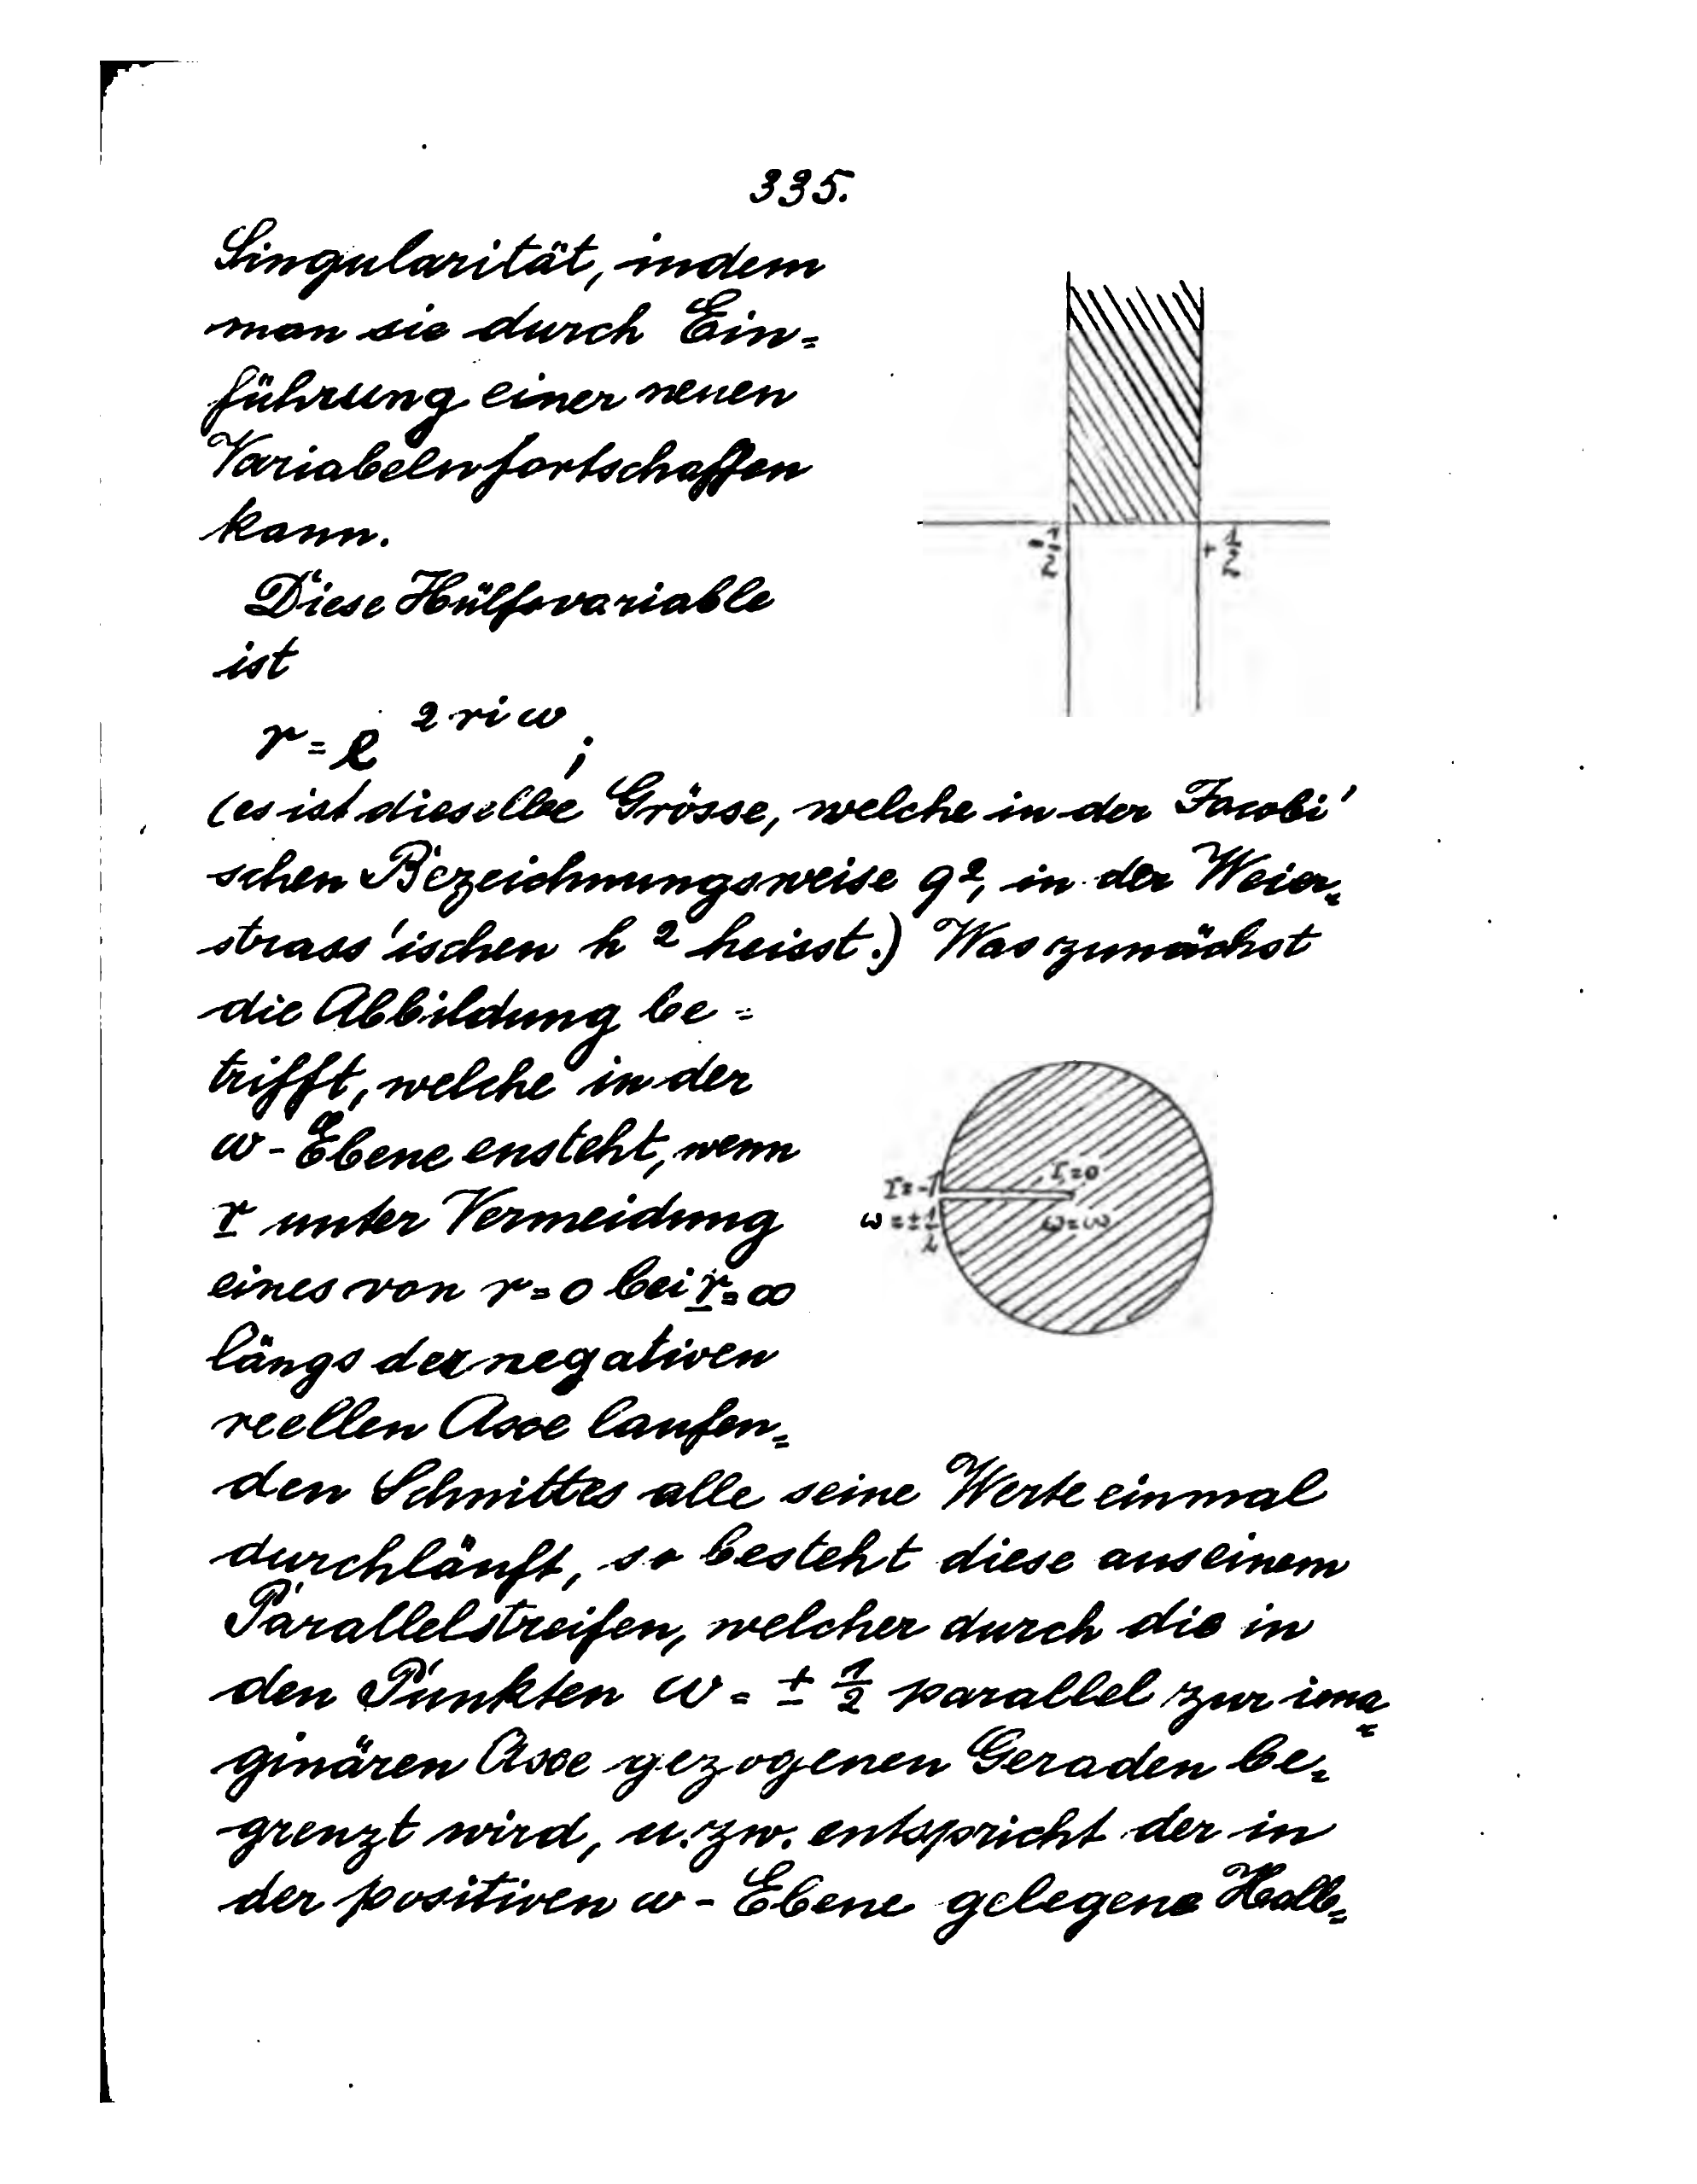 335.
Singularität, indem
man sie durch Ein=
führung einer neuen
Variabeln fortschaffen
kann.
Diese Hülfsvariable
ist
r = e^{2 πi ω};
-1/2
+ 1/2
(es ist dieselbe Grösse, welche in der Jacobi'
schen Bezeichnungsweise q², in der Weier=
strass'ischen h² heisst.) Was zunächst
die Abbildung be=
trifft, welche in der
ω-Ebene ensteht, wenn
r unter Vermeidung
eines von r=0 bei r=∞
längs der negativen
reellen Axe laufen=
r=-1
r=0
ω=±1/2
ω=∞
den Schnittes alle seine Werte einmal
durchläuft, so besteht diese aus einem
Parallelstreifen, welcher durch die in
den Punkten ω = ± 1/2 parallel zur ima=
ginären Axe gezogenen Geraden be=
grenzt wird, u. zw. entspricht der in
der positiven ω-Ebene gelegene Halb=